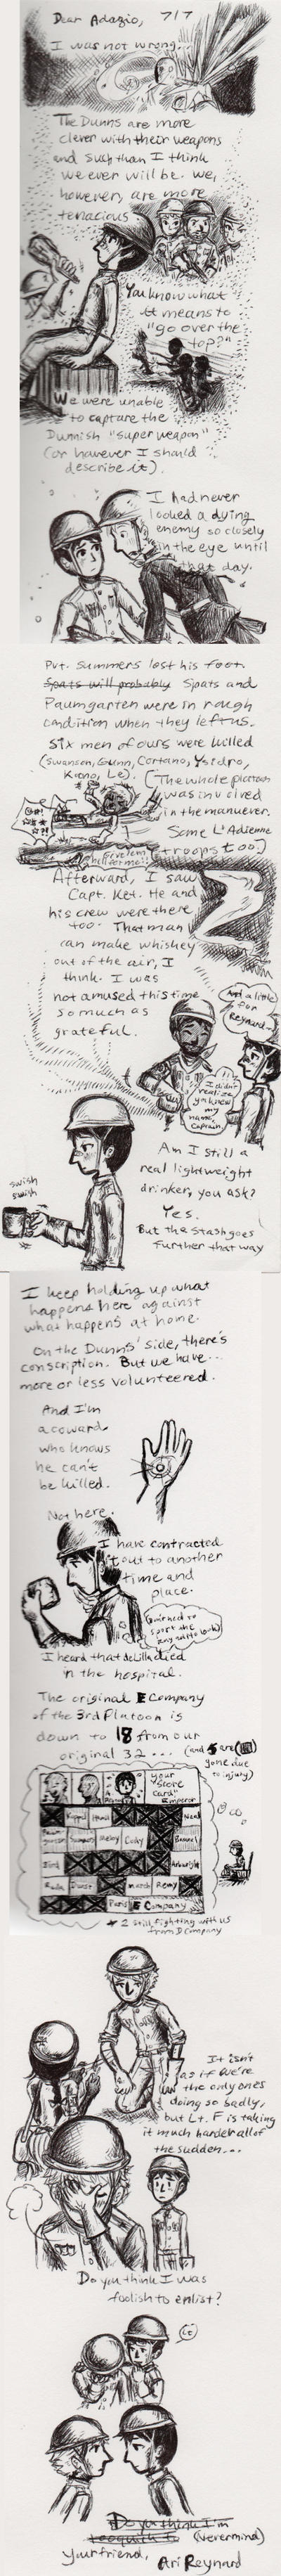 Dear Adagio, 7/7
I was not wrong...
The Dunns are more
clever with their weapons
and such than I think
we ever will be. We,
however, are more
tenacious
You know what
it means to
"go over the
top?"
We were unable
to capture the
Dunnish "super weapon"
(or however I should
describe it).
I had never
looked a dying
enemy so closely
in the eye until
that day.
Pvt. Summers lost his foot.
Spats will probably Spats and
Paumgarten were in rough
condition when they left us.
Six men of ours were killed
(Swanson, Gunn, Cortano, Ysidro,
Kono, Le). (The whole platoon
was involved
in the manuever.
Some L'Adienne
troops too.)
Afterward, I saw
Capt. Ket. He and
his crew were there
too. That man
can make whiskey
out of the air, I
think. I was
not amused this time
so much as
grateful.
And a little
for
Reynard.
!!!
I didn't
realize
ya knew
my
name,
Captain.
swish
swish
Am I still a
real lightweight
drinker, you ask?
Yes.
But the stash goes
further that way
I keep holding up what
happens here against
what happens at home.
On the Dunns' side, there's
conscription. But we have...
more or less volunteered.
And I'm
a coward
who knows
he can't
be killed.
Not here.
I have contracted
out to another
time and
place.
I heard that deLilla died
in the hospital.
The original E Company
of the 3rd Platoon is
down to 18 from our
original 32... (and 5 are
gone due
to injury)
your
"Score
Card"
Emperor
Neal
Cody
March Remy
E Company
* 2 still fighting with us
from D Company
It isn't
as if we're
the only ones
doing so badly,
but Lt. F is taking
it much harder all of
the sudden...
Do you think I was
foolish to enlist?
Lt
Do you think I'm
(Nevermind)
Your friend, Ari Reynard